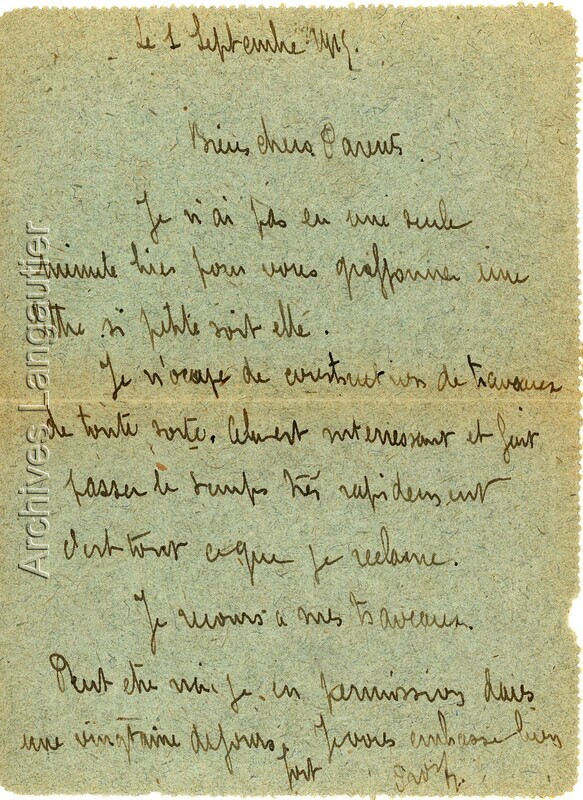 Le 1 Septembre 1915.
Biens chers Parents.
Je n'ai pas eu une seule
minute hier pour vous griffonner une
lettre si petite soit elle.
Je m'occupe de construction de travaux
de toute sorte. Cela est interressant et fait
passer le temps très rapidement
c'est tout ce que je réclame.
Je recours a mes travaux.
Peut etre irai-je en permission dans
une vingtaine de jours. Je vous embrasse bien
fort
Archives Langautier